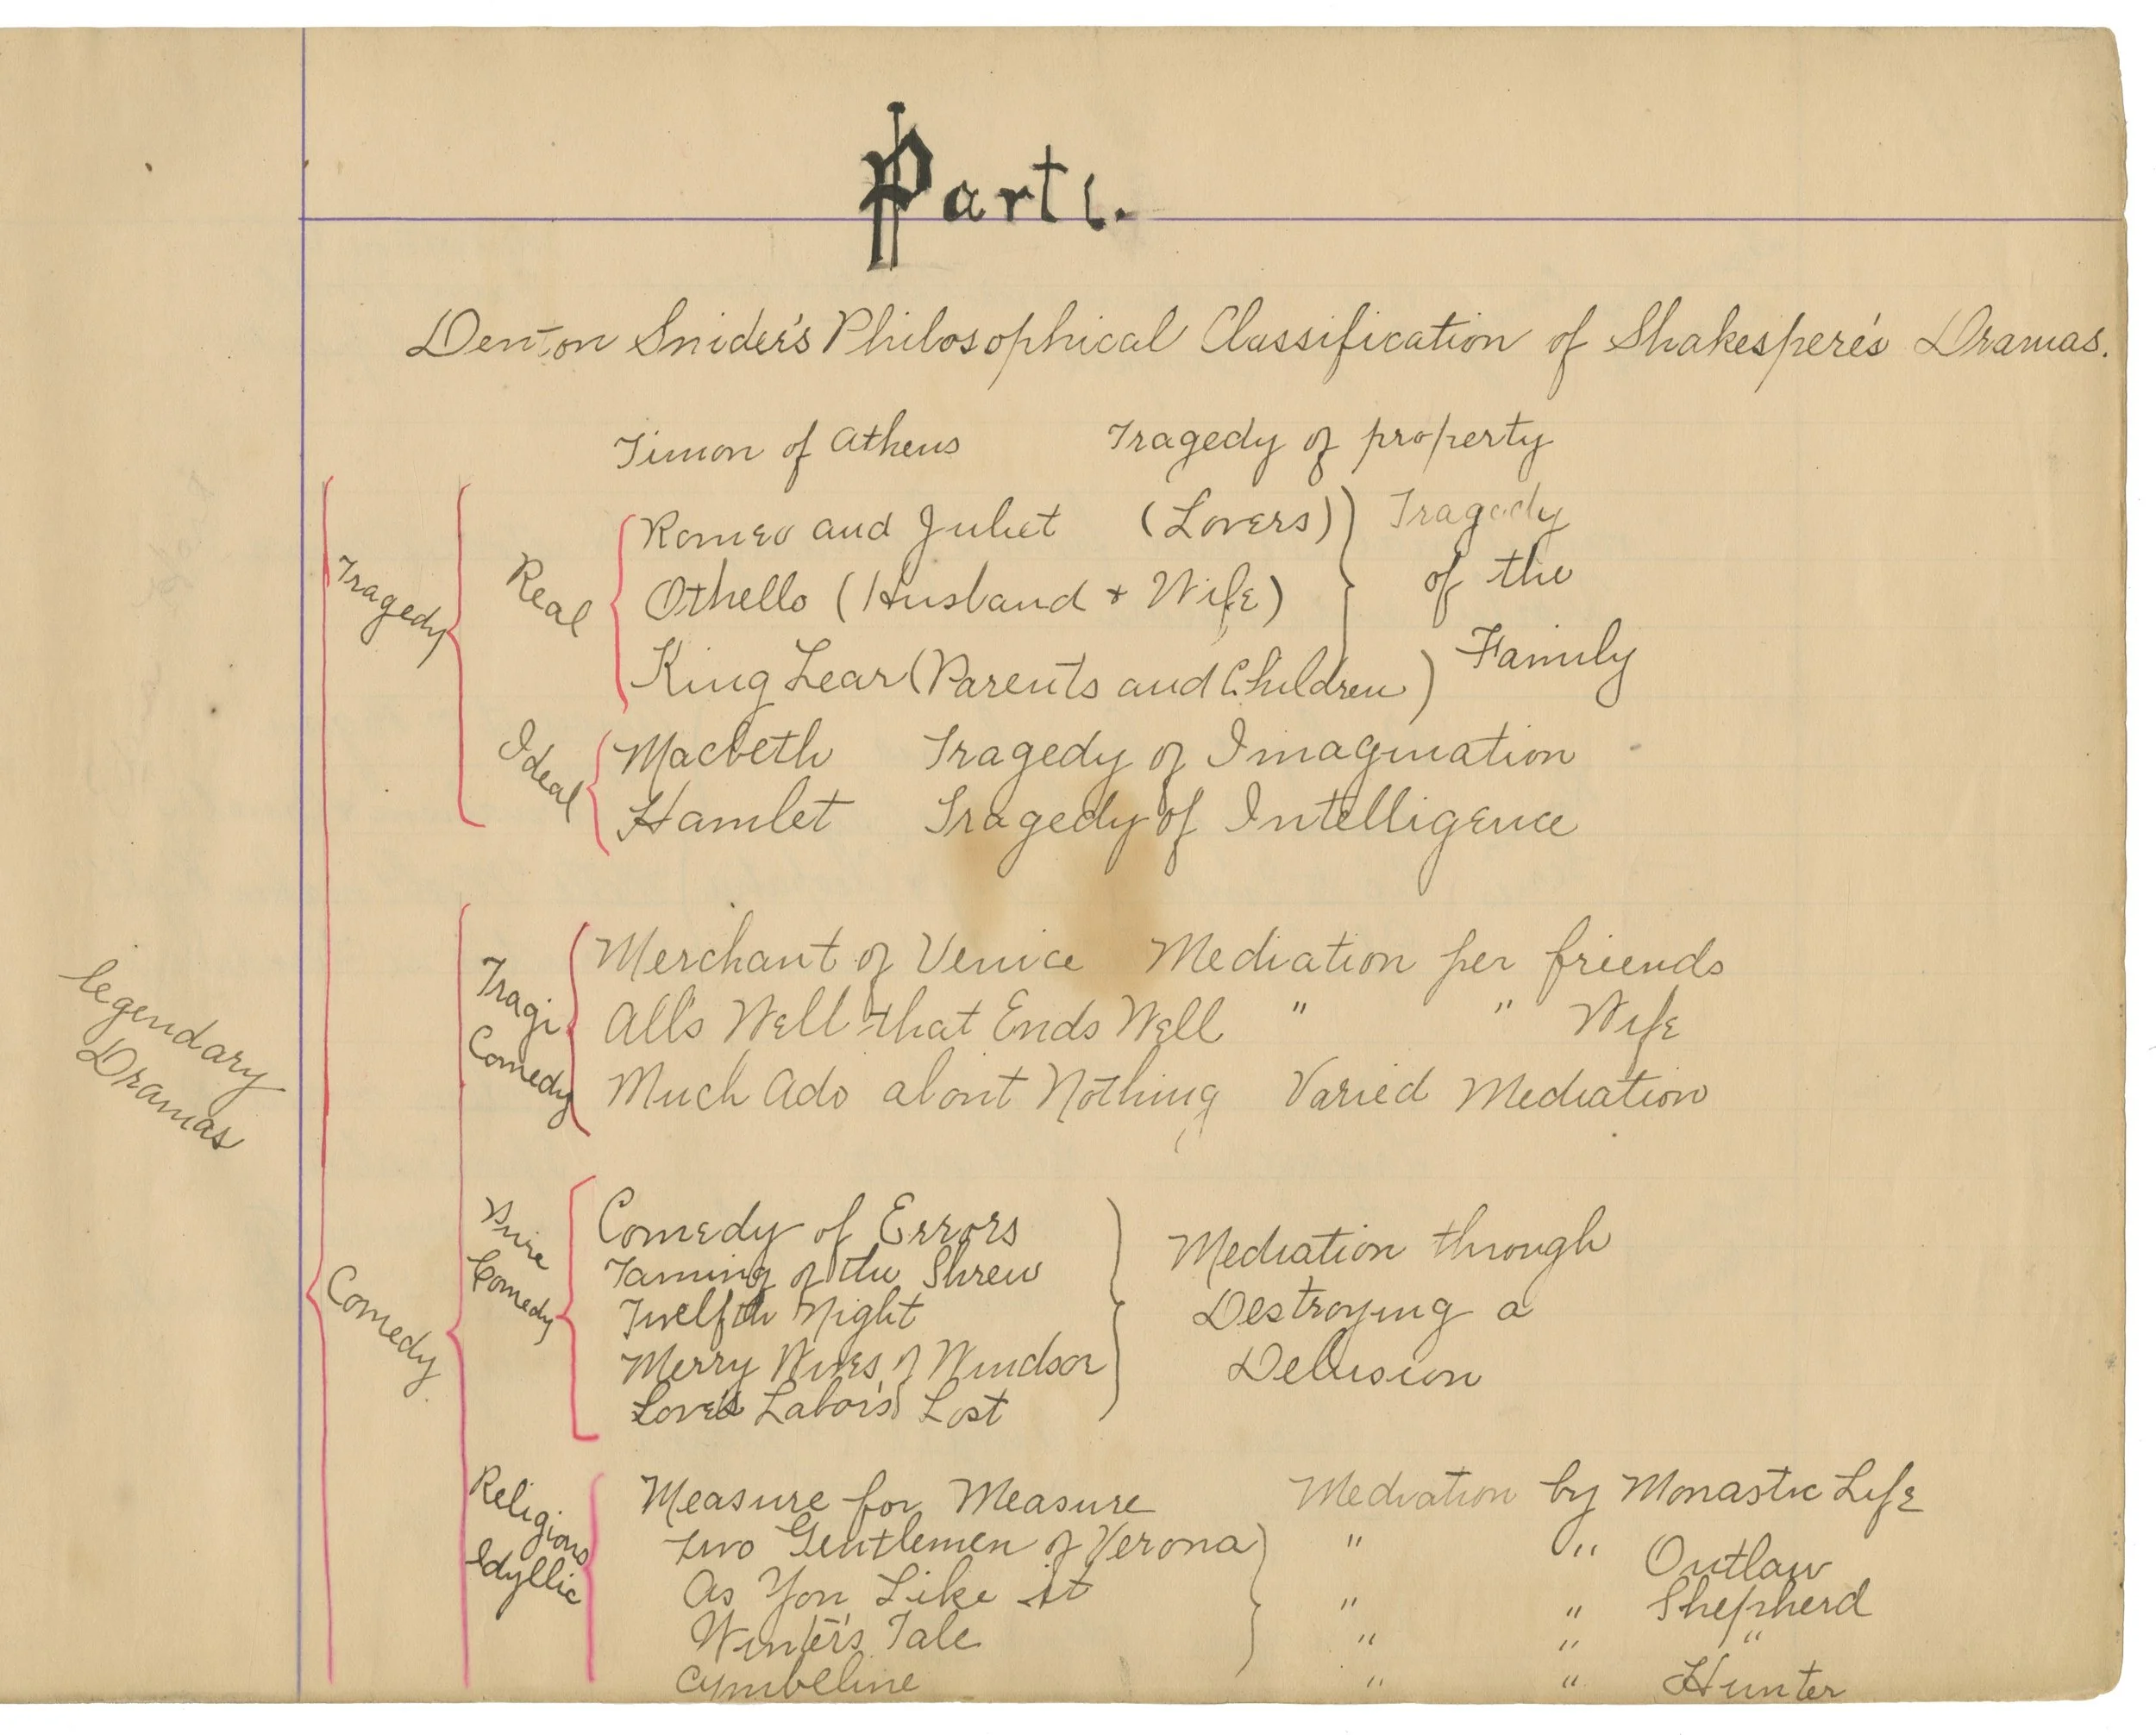 Part 1.
Denton Snider's Philosophical Classification of Shakespere's Dramas.
Timon of Athens Tragedy of property
Romeo and Juliet (Lovers) Tragedy
Tragedy Real Othello (Husband + Wife) of the
King Lear (Parents and Children) Family
Ideal Macbeth Tragedy of Imagination
Hamlet Tragedy of Intelligence
Merchant of Venice Mediation per friends
Tragi All's Well that Ends Well " " Wife
Comedy Much Ado about Nothing Varied Mediation
legendary
Dramas
Pure Comedy of Errors Mediation through
Comedy Taming of the Shrew
Comedy Twelfth Night Destroying a
Merry Wives of Windsor Delusion
Love's Labor's Lost
Religious Measure for Measure Mediation by Monastic Life
Idyllic Two Gentlemen of Verona " " Outlaw
As You Like it " " Shepherd
Winter's Tale " " "
Cymbeline " " Hunter